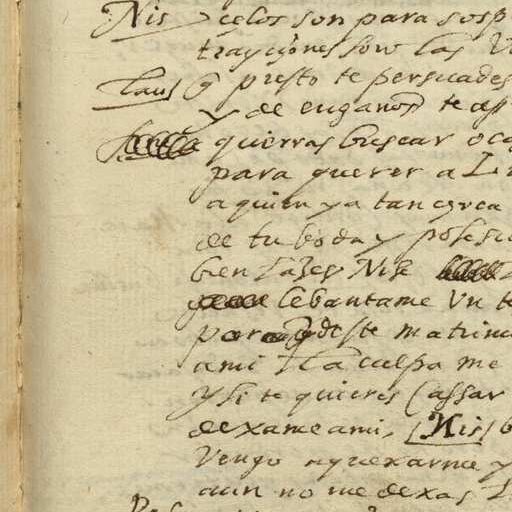 Nis celos son para sosp
trayçiones son las V
Laus q presto te persuades
y de engaños te
quieras buscar oca
para querer a Li
a quien ya tan çerca
de tu boda y posesi
bien hazes Nise
lebantame un te
para q deste matrimo
a mi la culpa me
y si te quieres cassar
dexame a mi, Nis b
vengo a quexarme y
aun no me dexas